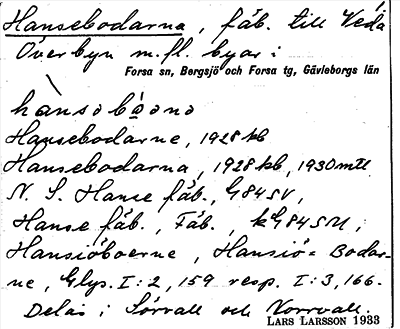 Hansebodarna, fäb. till Veda
Överbyn m. fl. byar i
Forsa sn, Bergsjö och Forsa tg, Gävleborgs län
hànsəbòənə
Hansebodarne, 1928 kb
Hansebodarna, 1928 kb, 1930 mtl
N. S. Hanse fäb., G84SV,
Hanse fäb., Fäb., kG84SM;
Hansiöboerne, Hansiö= Bodar-
ne, Glys. I:2, 159 resp. I:3, 166.
Delas i Sörvall och Norrvall.
LARS LARSSON 1933